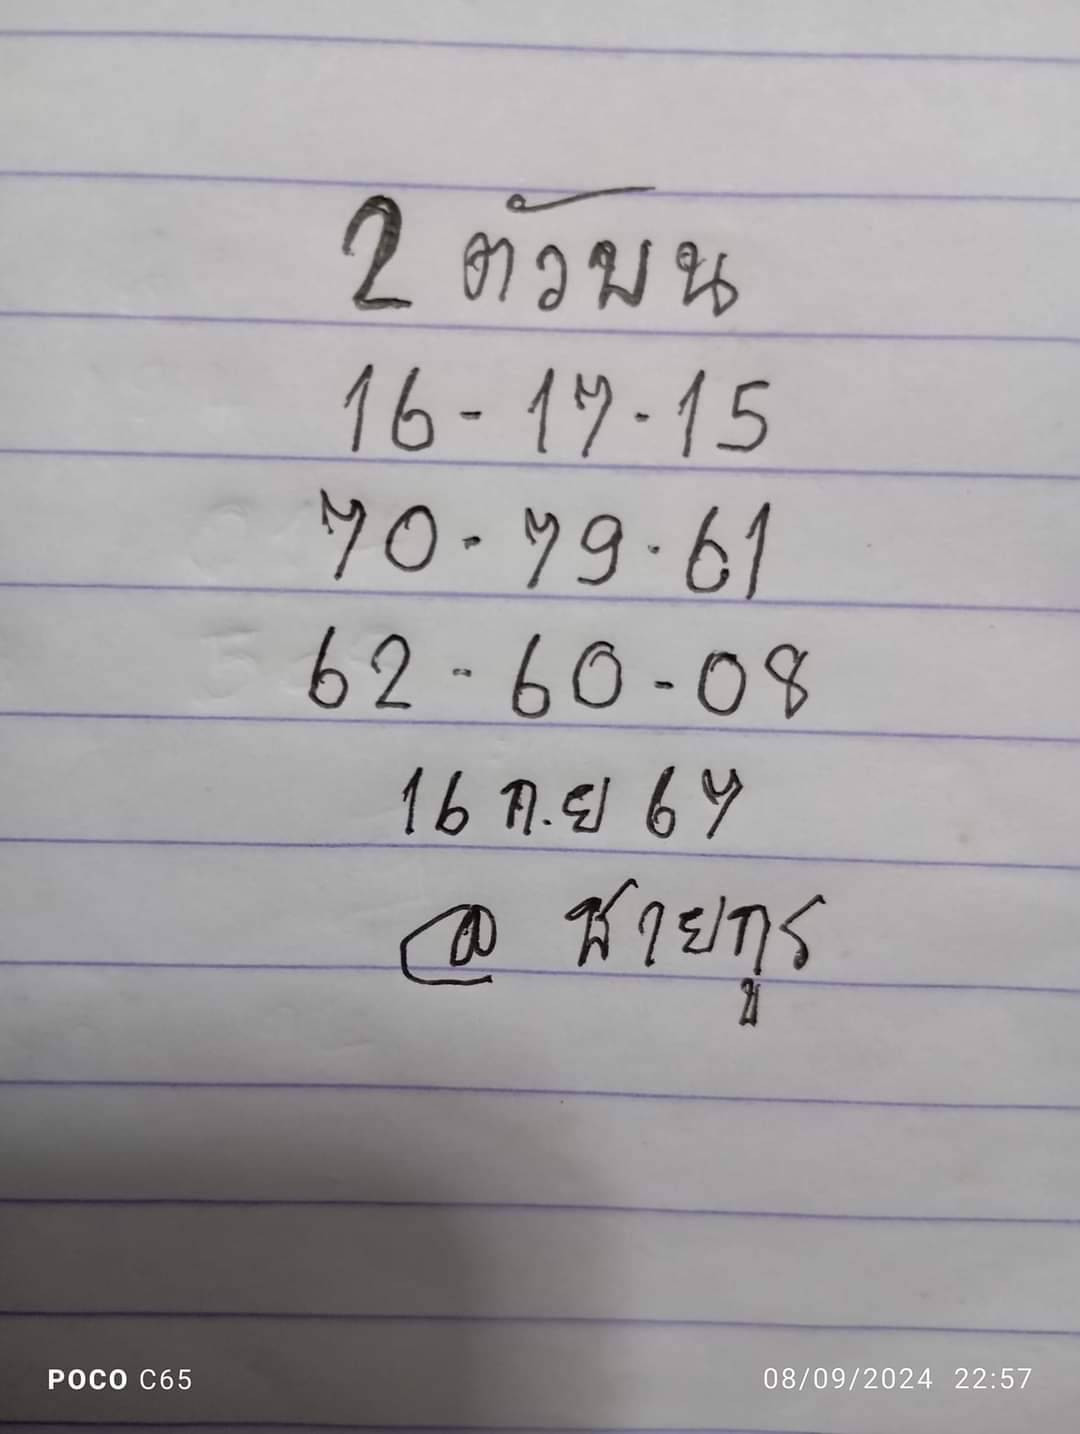 2 ตัวบน
16 - 17 - 15
70 - 79 - 61
62 - 60 - 08
16 ก.ย 67
@ ชายกูร
POCO C65
08/09/2024 22:57